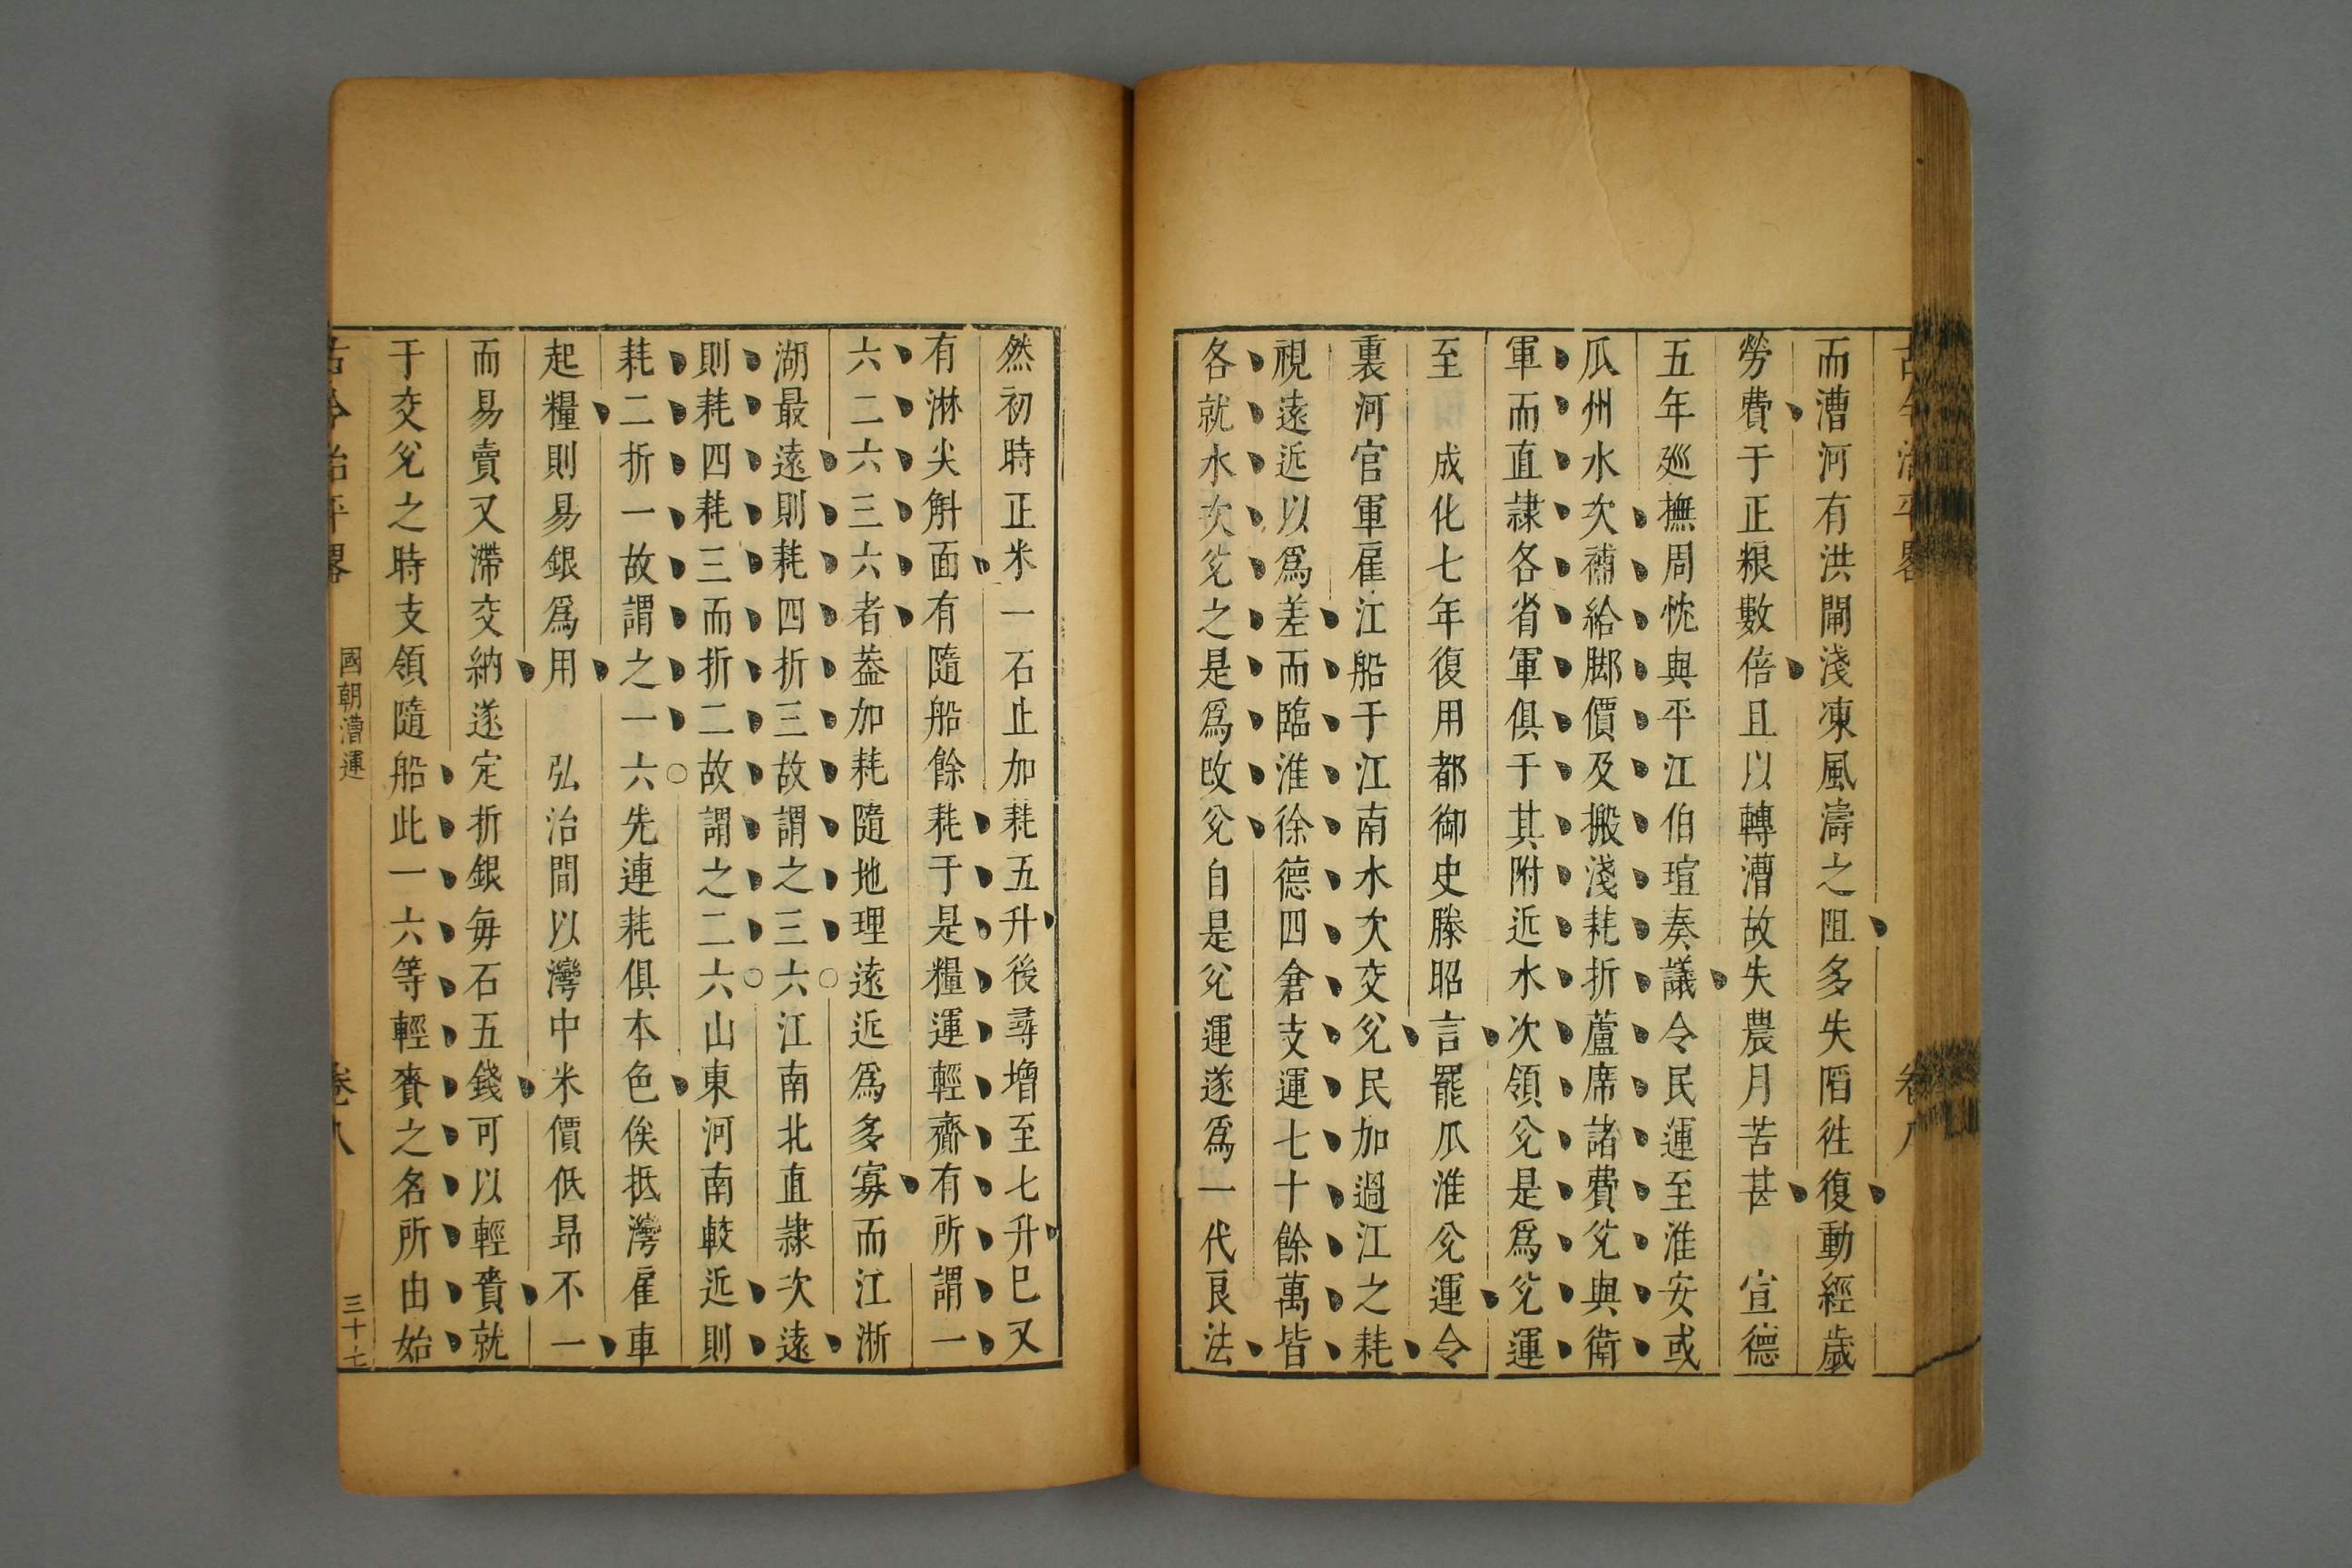 而漕河有洪閘淺凍風濤之阻多失陷徃復動經歲
勞費于正粮數倍且以轉漕故失農月苦甚　宣德
五年廵撫周忱與平江伯瑄奏議令民運至淮安或
瓜州水次補給脚價及搬淺耗折蘆席諸費兊與衛
軍而直隷各省軍俱于其附近水次領兊是爲兊運
至　成化七年復用都御史滕昭言罷瓜淮兊運令
裏河官軍雇江船于江南水次交兊民加過江之耗
視遠近以爲差而臨淮徐德四倉支運七十餘萬皆
各就水次兊之是爲改兊自是兊運遂爲一代良法
然初時正米一石止加耗五升後尋增至七升巳又
有淋尖斛面有隨船餘耗于是糧運輕齎有所謂一
六二六三六者葢加耗隨地理遠近爲多寡而江浙
湖最遠則耗四折三故謂之三六江南北直隷次遠
則耗四耗三而折二故謂之二六山東河南較近則
耗二折一故謂之一六先連耗俱本色俟抵灣雇車
起糧則易銀爲用　弘治間以灣中米價低昂不一
而易賣又滯交納遂定折銀每石五錢可以輕賫就
于交兊之時支領隨船此一六等輕賚之名所由始
古今治平畧　國朝漕運　卷八　三十七